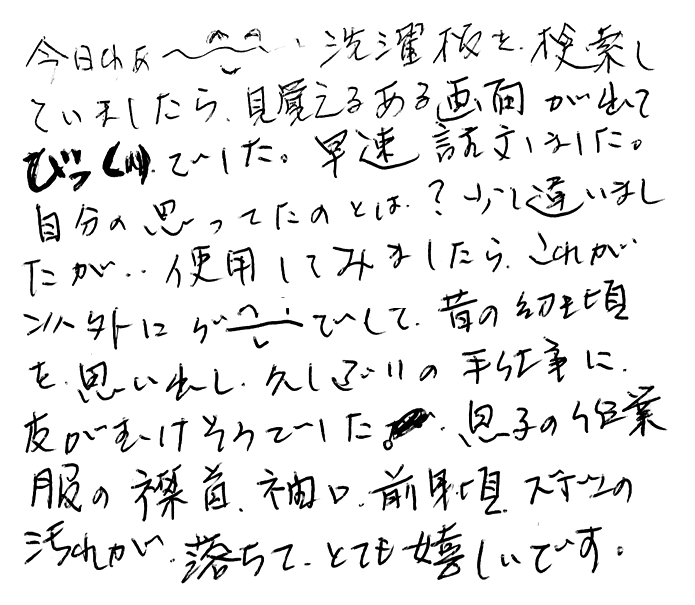 今日わぁ〜、洗濯板を、検索し
ていましたら、見覚えるある画面が出て
びっくりでした。早速、註文しました。
自分の思ってたのとは、？少し違いまし
たが‥使用してみましたら、これが
以外にグーでして、昔の幼き頃
を、思い出し、久しぶりの手仕事に、
皮がむけそうでした。息子の作業
服の襟首、袖口、前身頃、ズボンの
汚れが、落ちて、とても嬉しいです。